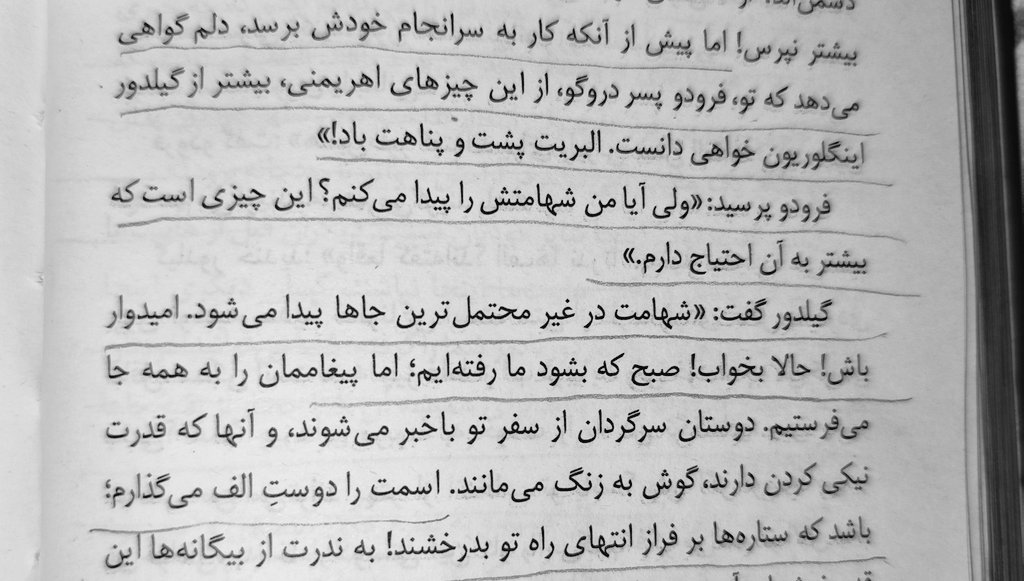 بیشتر نپرس! اما پیش از آنکه کار به سرانجام خودش برسد، دلم گواهی
می‌دهد که تو، فرودو پسر دروگو، از این چیزهای اهریمنی، بیشتر از گیلدور
اینگلوریون خواهی دانست. البریت پشت و پناهت باد!»
فرودو پرسید: «ولی آیا من شهامتش را پیدا می‌کنم؟ این چیزی است که
بیشتر به آن احتیاج دارم.»
گیلدور گفت: «شهامت در غیر محتمل‌ترین جاها پیدا می‌شود. امیدوار
باش! حالا بخواب! صبح که بشود ما رفته‌ایم؛ اما پیغاممان را به همه جا
می‌فرستیم. دوستان سرگردان از سفر تو باخبر می‌شوند، و آنها که قدرت
نیکی کردن دارند، گوش به زنگ می‌مانند. اسمت را دوستِ الف می‌گذارم؛
باشد که ستاره‌ها بر فراز انتهای راه تو بدرخشند! به ندرت از بیگانه‌ها این